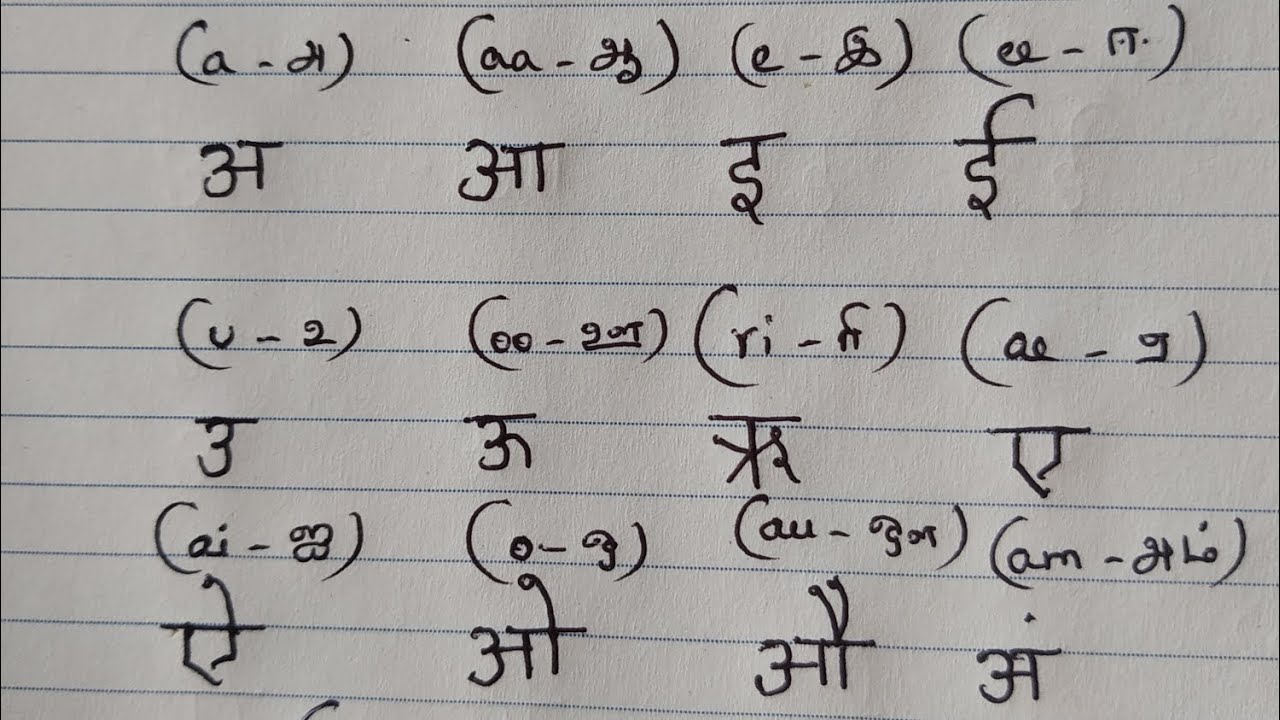 (a - அ) (aa - ஆ) (e - இ) (ee - ஈ)
अ आ इ ई
(u - உ) (oo - ஊ) (ri - ரி) (ae - ஏ)
उ ऊ ऋ ए
(ai - ஐ) (o - ஓ) (au - ஔ) (am - அம்)
ऐ ओ औ अं